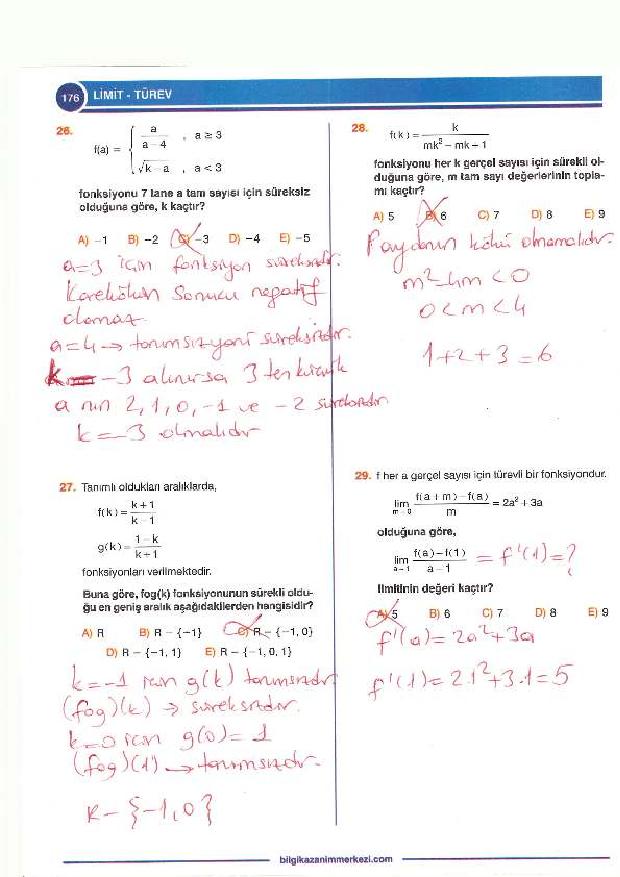 176 LİMİT - TÜREV
26.
f(a) = { a / a - 4 , a ≥ 3
√k - a , a < 3
fonksiyonu 7 tane a tam sayısı için süreksiz
olduğuna göre, k kaçtır?
A) -1 B) -2 C) -3 D) -4 E) -5
a=3 için fonksiyon süreksizdir.
Karekökün sonucu negatif
olamaz
a=4 → tanımsız yani süreksizdir.
-3 alınırsa 3 ten küçük
a nın 2,1,0,-1 ve -2 süreksizdir
k=-3 olmalıdır
27. Tanımlı oldukları aralıklarda,
f(k) = k + 1 / k - 1
g(k) = 1 - k / k + 1
fonksiyonları verilmektedir.
Buna göre, fog(k) fonksiyonunun sürekli oldu-
ğu en geniş aralık aşağıdakilerden hangisidir?
A) R B) R - {-1} C) R - {-1, 0}
D) R - {-1, 1} E) R - {-1, 0, 1}
k=-1 için g(k) tanımsızdır
(fog)(k) → süreksizdir.
k=0 için g(0)=1
(fog)(1) → tanımsızdır.
R-{-1,0}
28.
f(k) = k / mk² - mk + 1
fonksiyonu her k gerçel sayısı için sürekli ol-
duğuna göre, m tam sayı değerlerinin topla-
mı kaçtır?
A) 5 B) 6 C) 7 D) 8 E) 9
Paydanın kökü olmamalıdır.
m²-4m<0
0<m<4
1+2+3=6
29. f her a gerçel sayısı için türevli bir fonksiyondur.
lim m→0 f(a + m) - f(a) / m = 2a² + 3a
olduğuna göre,
lim a→1 f(a) - f(1) / a - 1 = f'(1)=?
limitinin değeri kaçtır?
A) 5 B) 6 C) 7 D) 8 E) 9
f'(a)=2a²+3a
f'(1)=2.1²+3.1=5
bilgikazanimmerkezi.com